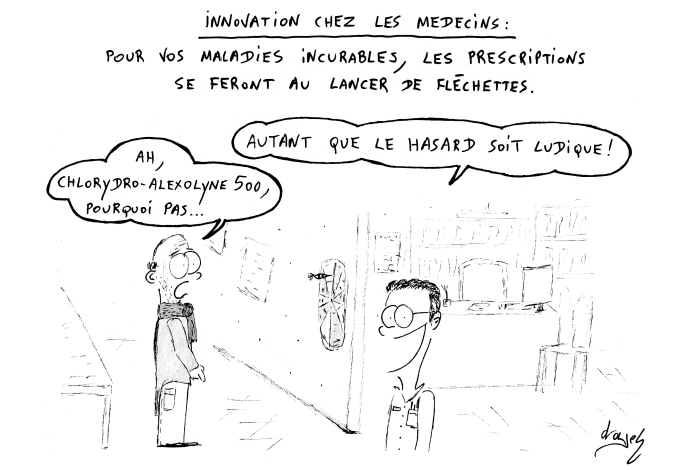 INNOVATION CHEZ LES MEDECINS :
POUR VOS MALADIES INCURABLES, LES PRESCRIPTIONS
SE FERONT AU LANCER DE FLÉCHETTES.
AUTANT QUE LE HASARD SOIT LUDIQUE !
AH,
CHLORYDRO-ALEXOLYNE 500,
POURQUOI PAS...